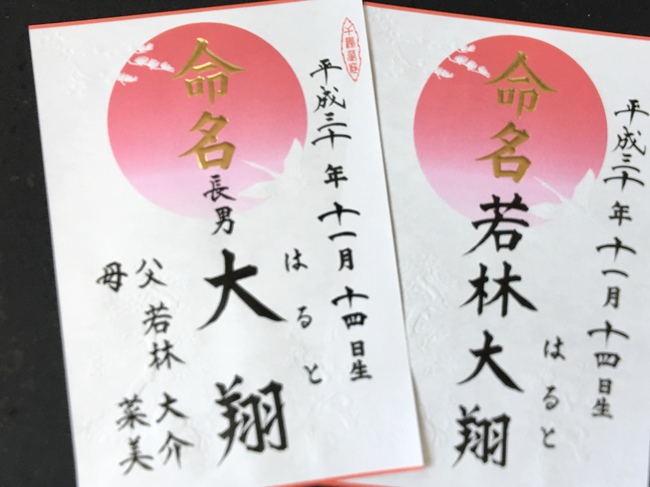 平成三十年十一月十四日生
命名
長男
大翔
はると
父 若林 大介
母 菜美
平成三十年十一月十四日生
命名
若林大翔
はると